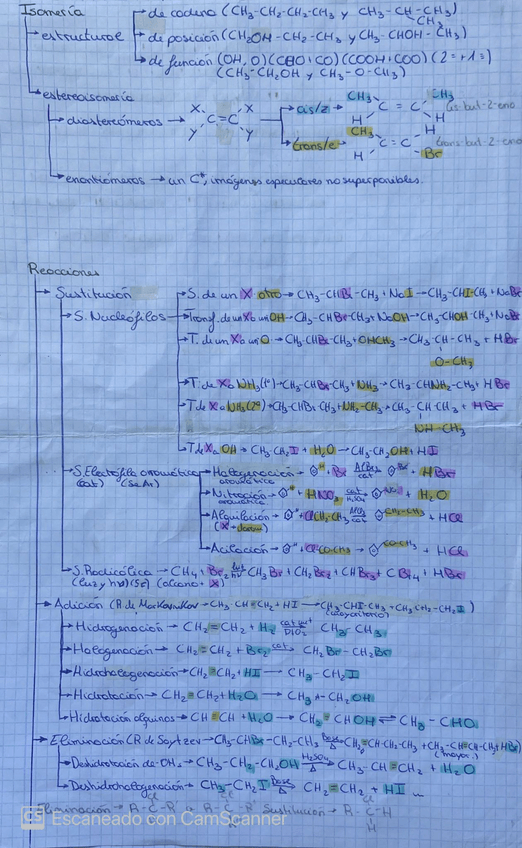 Isomería
→ estructural
→ de cadena (CH₃-CH₂-CH₂-CH₃ y CH₃-CH-CH₃)
CH₃
→ de posición (CH₂OH-CH₂-CH₃ y CH₃-CHOH-CH₃)
→ de función (OH, O) (CHO+CO) (COOH+COO) (2= +1≡)
(CH₃-CH₂OH y CH₃-O-CH₃)
→ estereoisomería
→ diastereómeros → X X C=C Y Y
→ cis/z → CH₃ CH₃ C=C H H cis-but-2-eno
→ trans/e → CH₃ H C=C H Br trans-but-2-eno
→ enantiómeros → un C*, imágenes especulares no superponibles.
Reacciones
→ Sustitución
→ S. Nucleófilos
→ S. de un X otro → CH₃-CHBr-CH₃ + NaI → CH₃-CHI-CH₃ + NaBr
→ Transf. de un X a un OH → CH₃-CHBr-CH₃ + NaOH → CH₃-CHOH-CH₃ + NaBr
→ T. de un X a un O → CH₃-CHBr-CH₃ + OHCH₃ → CH₃-CH-CH₃ + HBr
O-CH₃
→ T. de X a NH₃(1º) → CH₃-CHBr-CH₃ + NH₃ → CH₃-CHNH₂-CH₃ + HBr
→ T. de X a NH₃(2º) → CH₃-CHBr-CH₃ + NH₂-CH₃ → CH₃-CH-CH₃ + HBr
NH-CH₃
→ T. de X a OH → CH₃-CH₂I + H₂O → CH₃-CH₂OH + HI
→ S. Electrófila aromática
(cat) (SeAr)
→ Halogenación → H + Br AlBr₃ cat Br + HBr
aromática
→ Nitración → H + HNO₃ cat H₂SO₄ + H₂O
aromática
→ Alquilación → H + ClCH₂-CH₃ AlCl₃ cat CH₂-CH₃ + HCl
→ Acilación → H + Cl-CO-CH₃ → CO-CH₃ + HCl
→ S. Radicálica → CH₄ + Br₂ luz hν CH₃Br + CH₂Br₂ + CHBr₃ + CBr₄ + HBr
(luz y hν) (alcano + X)
→ Adición (R. de Markovnikov → CH₃-CH=CH₂ + HI → CH₃-CHI-CH₃ + CH₃-CH₂-CH₂I)
(mayoritario)
→ Hidrogenación → CH₂=CH₂ + H₂ cat CH₃-CH₃
→ Halogenación → CH₂=CH₂ + Br₂ cat CH₂Br-CH₂Br
→ Hidrohalogenación → CH₂=CH₂ + HI → CH₃-CH₂I
→ Hidratación → CH₂=CH₂ + H₂O → CH₃-CH₂OH
→ Hidratación alquinos → CH≡CH + H₂O → CH₂=CHOH ⇌ CH₃-CHO
→ Eliminación (R. de Saytzev → CH₃-CHBr-CH₂-CH₃ base Δ CH₂=CH-CH₂-CH₃ + CH₃-CH=CH-CH₃ + HBr)
(mayor.)
→ Deshidratación de -OH → CH₃-CH₂-CH₂OH H₂SO₄ Δ CH₃-CH=CH₂ + H₂O
→ Deshidrohalogenación → CH₃-CH₂I base Δ CH₂=CH₂ + HI
Eliminación → R-C-R Sustitución → R-C-H
H
CS Escaneado con CamScanner